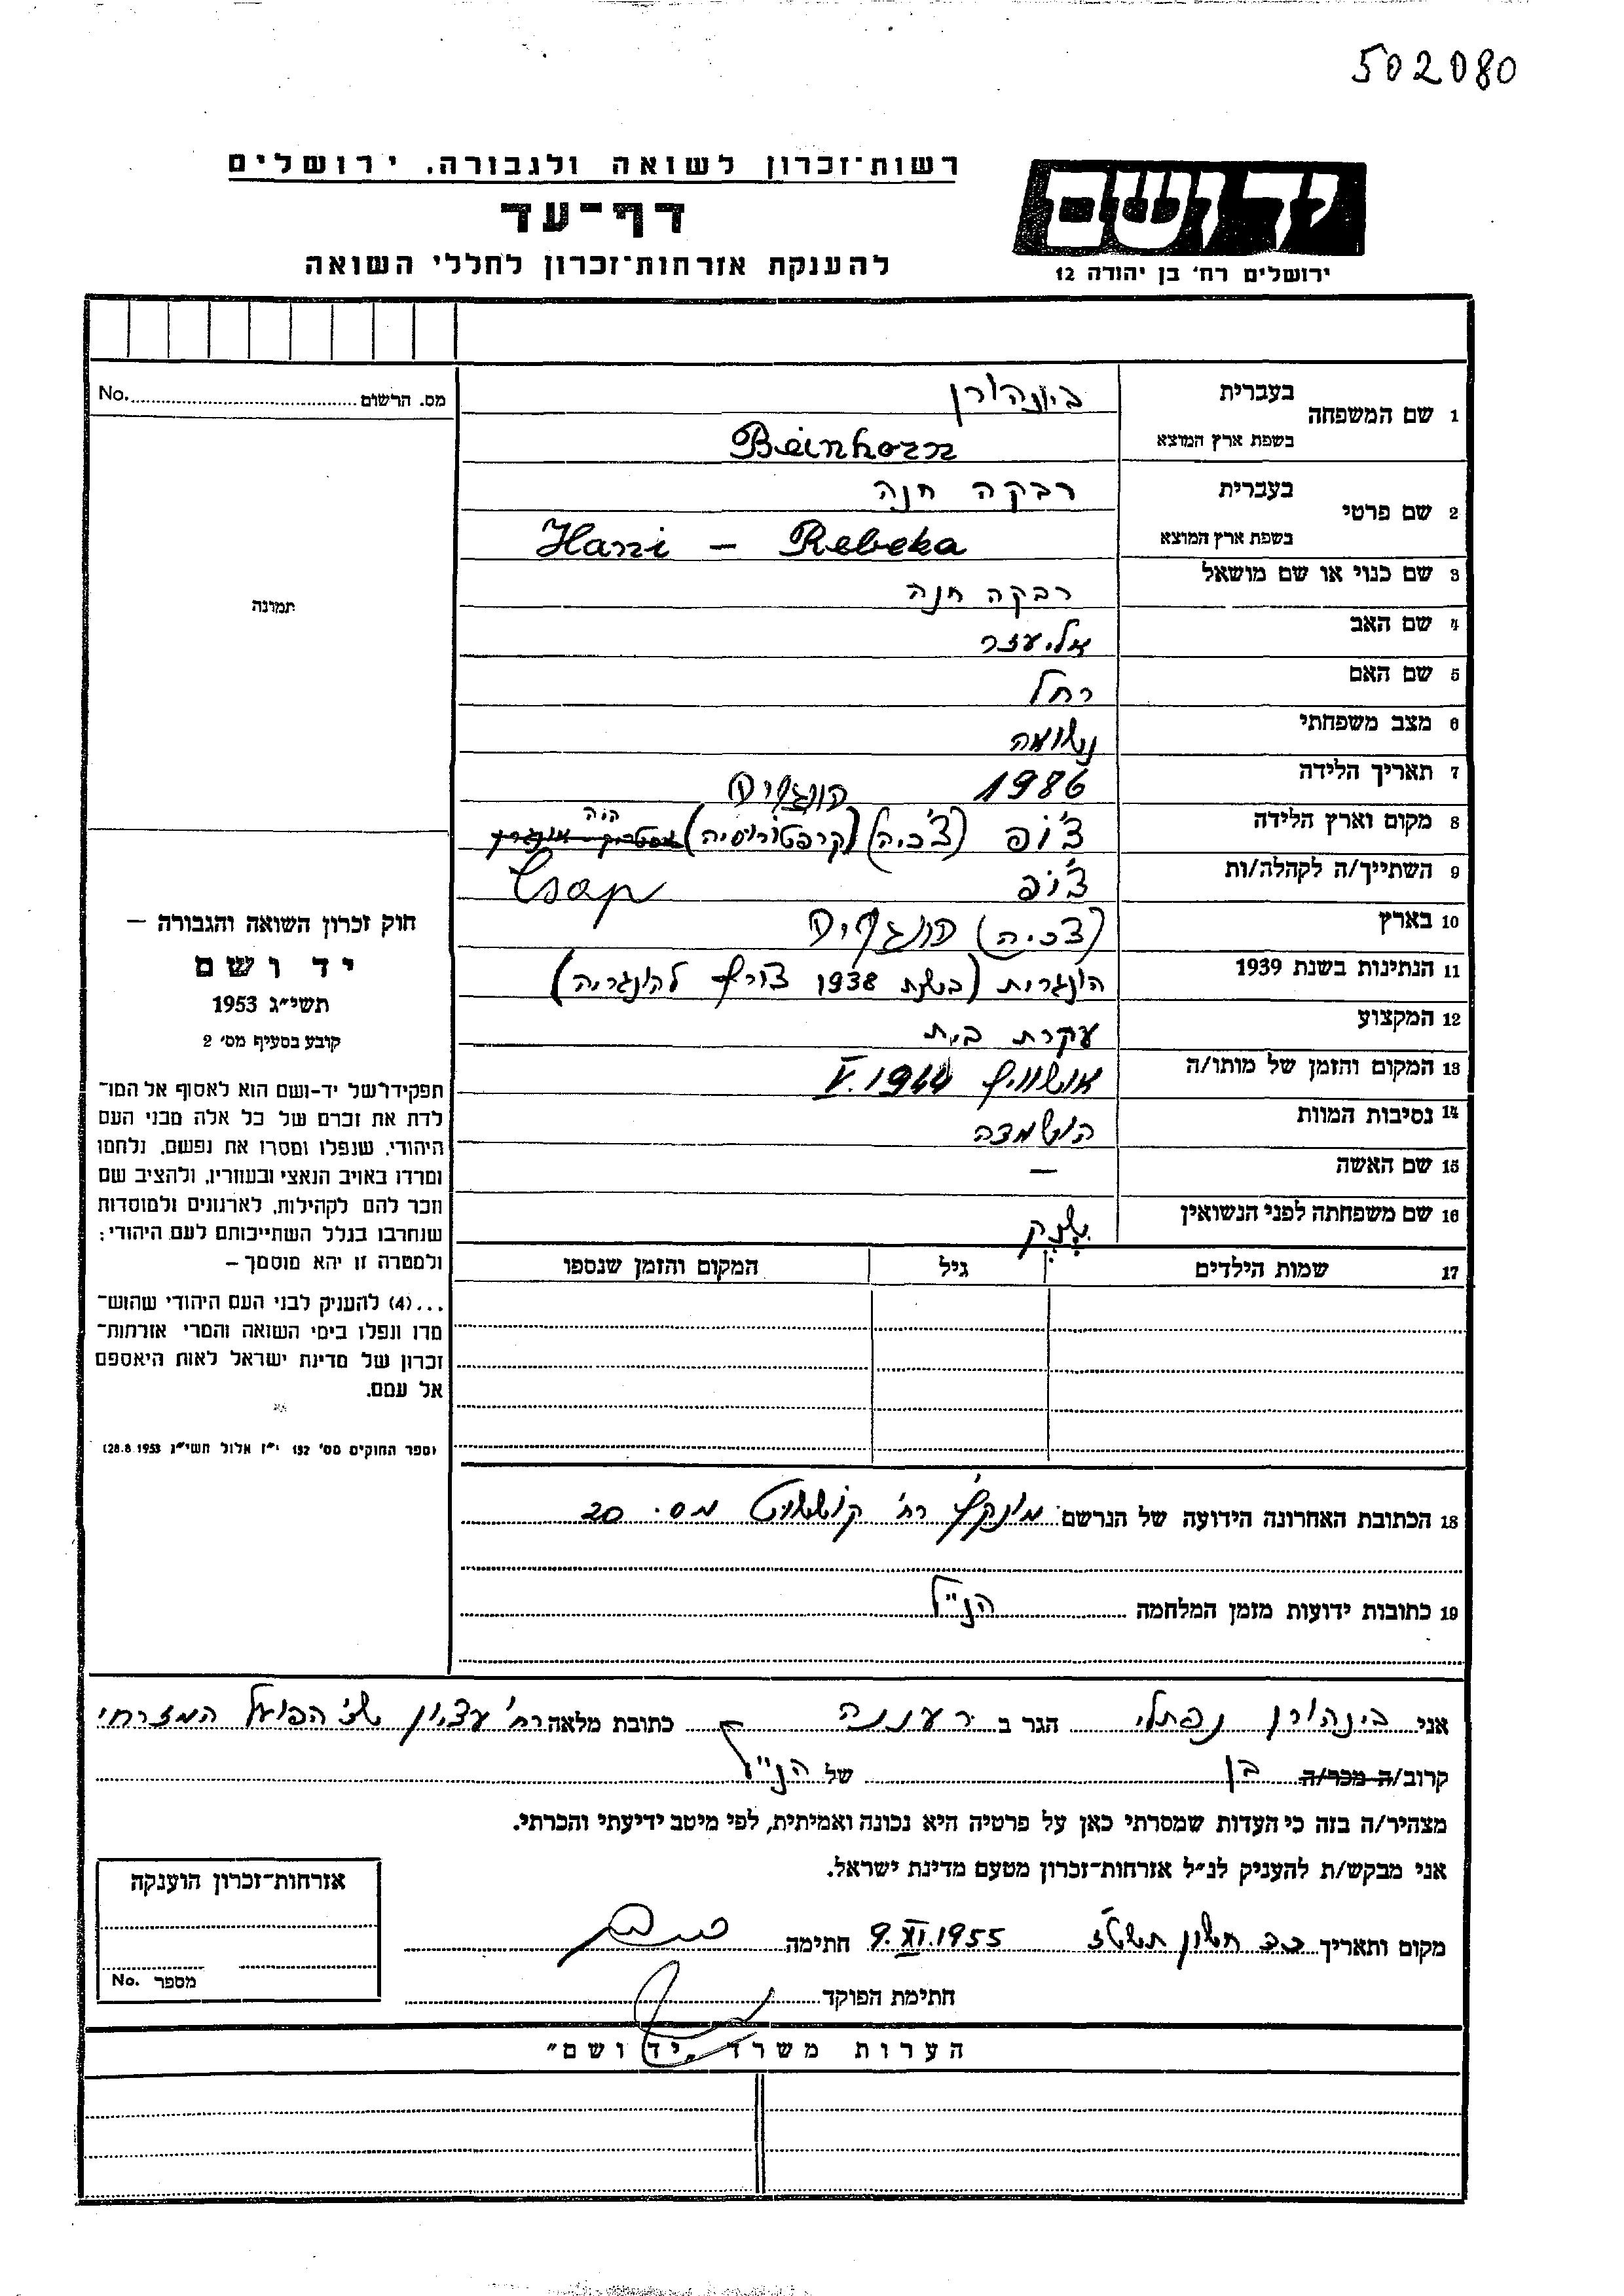 502080
רשות־זכרון לשואה ולגבורה, ירושלים
יד ושם
דף־עד
להענקת אזרחות־זכרון לחללי השואה
ירושלים רח' בן יהודה 12
No. מס. הרשום
תמונה
1 שם המשפחה בעברית ביינהורן
בשפת ארץ המוצא Beinhorn
2 שם פרטי בעברית רבקה חנה
בשפת ארץ המוצא Hani – Rebeka
3 שם כנוי או שם מושאל רבקה חנה
4 שם האב אליעזר
5 שם האם רחל
6 מצב משפחתי נשואה
7 תאריך הלידה 1986
8 מקום וארץ הלידה צ'ופ (צ'כיה) (קרפטורוסיה)
9 השתייך/ה לקהלה/ות צ'ופ Csap
10 בארץ (צכיה)
11 הנתינות בשנת 1939 הונגרית (בשנת 1938 צורף להונגריה)
12 המקצוע עקרת בית
13 המקום והזמן של מותו/ה אושוויץ V.1944
14 נסיבות המוות הושמדה
15 שם האשה –
16 שם משפחתה לפני הנשואין
17 שמות הילדים גיל המקום והזמן שנספו
חוק זכרון השואה והגבורה –
יד ושם
תשי״ג 1953
קובע בסעיף מס' 2
תפקידו של יד-ושם הוא לאסוף אל המו־
לדת את זכרם של כל אלה מבני העם
היהודי, שנפלו ומסרו את נפשם, נלחמו
ומרדו באויב הנאצי ובעוזריו, ולהציב שם
וזכר להם לקהילות, לארגונים ולמוסדות
שנחרבו בגלל השתייכותם לעם היהודי;
ולמטרה זו יהא מוסמך –
...(4) להעניק לבני העם היהודי שהוש־
מדו ונפלו בימי השואה והמרי אזרחות־
זכרון של מדינת ישראל לאות היאספם
אל עמם.
(ספר החוקים מס' 132 י״ז אלול תשי״ג 28.8.1953)
18 הכתובת האחרונה הידועה של הנרשם מונקץ' רח' קושוט מס. 20
19 כתובות ידועות מזמן המלחמה הנ״ל
אני ביינהורן נפתלי הגר ב רעננה כתובת מלאה רח' עציון שכ' הפועל המזרחי
קרוב/ה מכר/ה בן של הנ״ל
מצהיר/ה בזה כי העדות שמסרתי כאן על פרטיה היא נכונה ואמיתית, לפי מיטב ידיעתי והכרתי.
אני מבקש/ת להעניק לנ״ל אזרחות־זכרון מטעם מדינת ישראל.
מקום ותאריך כד חשון תשט״ז 9.XI.1955 חתימה
חתימת הפוקד
אזרחות־זכרון הוענקה
No. מספר
הערות משרד „יד ושם״